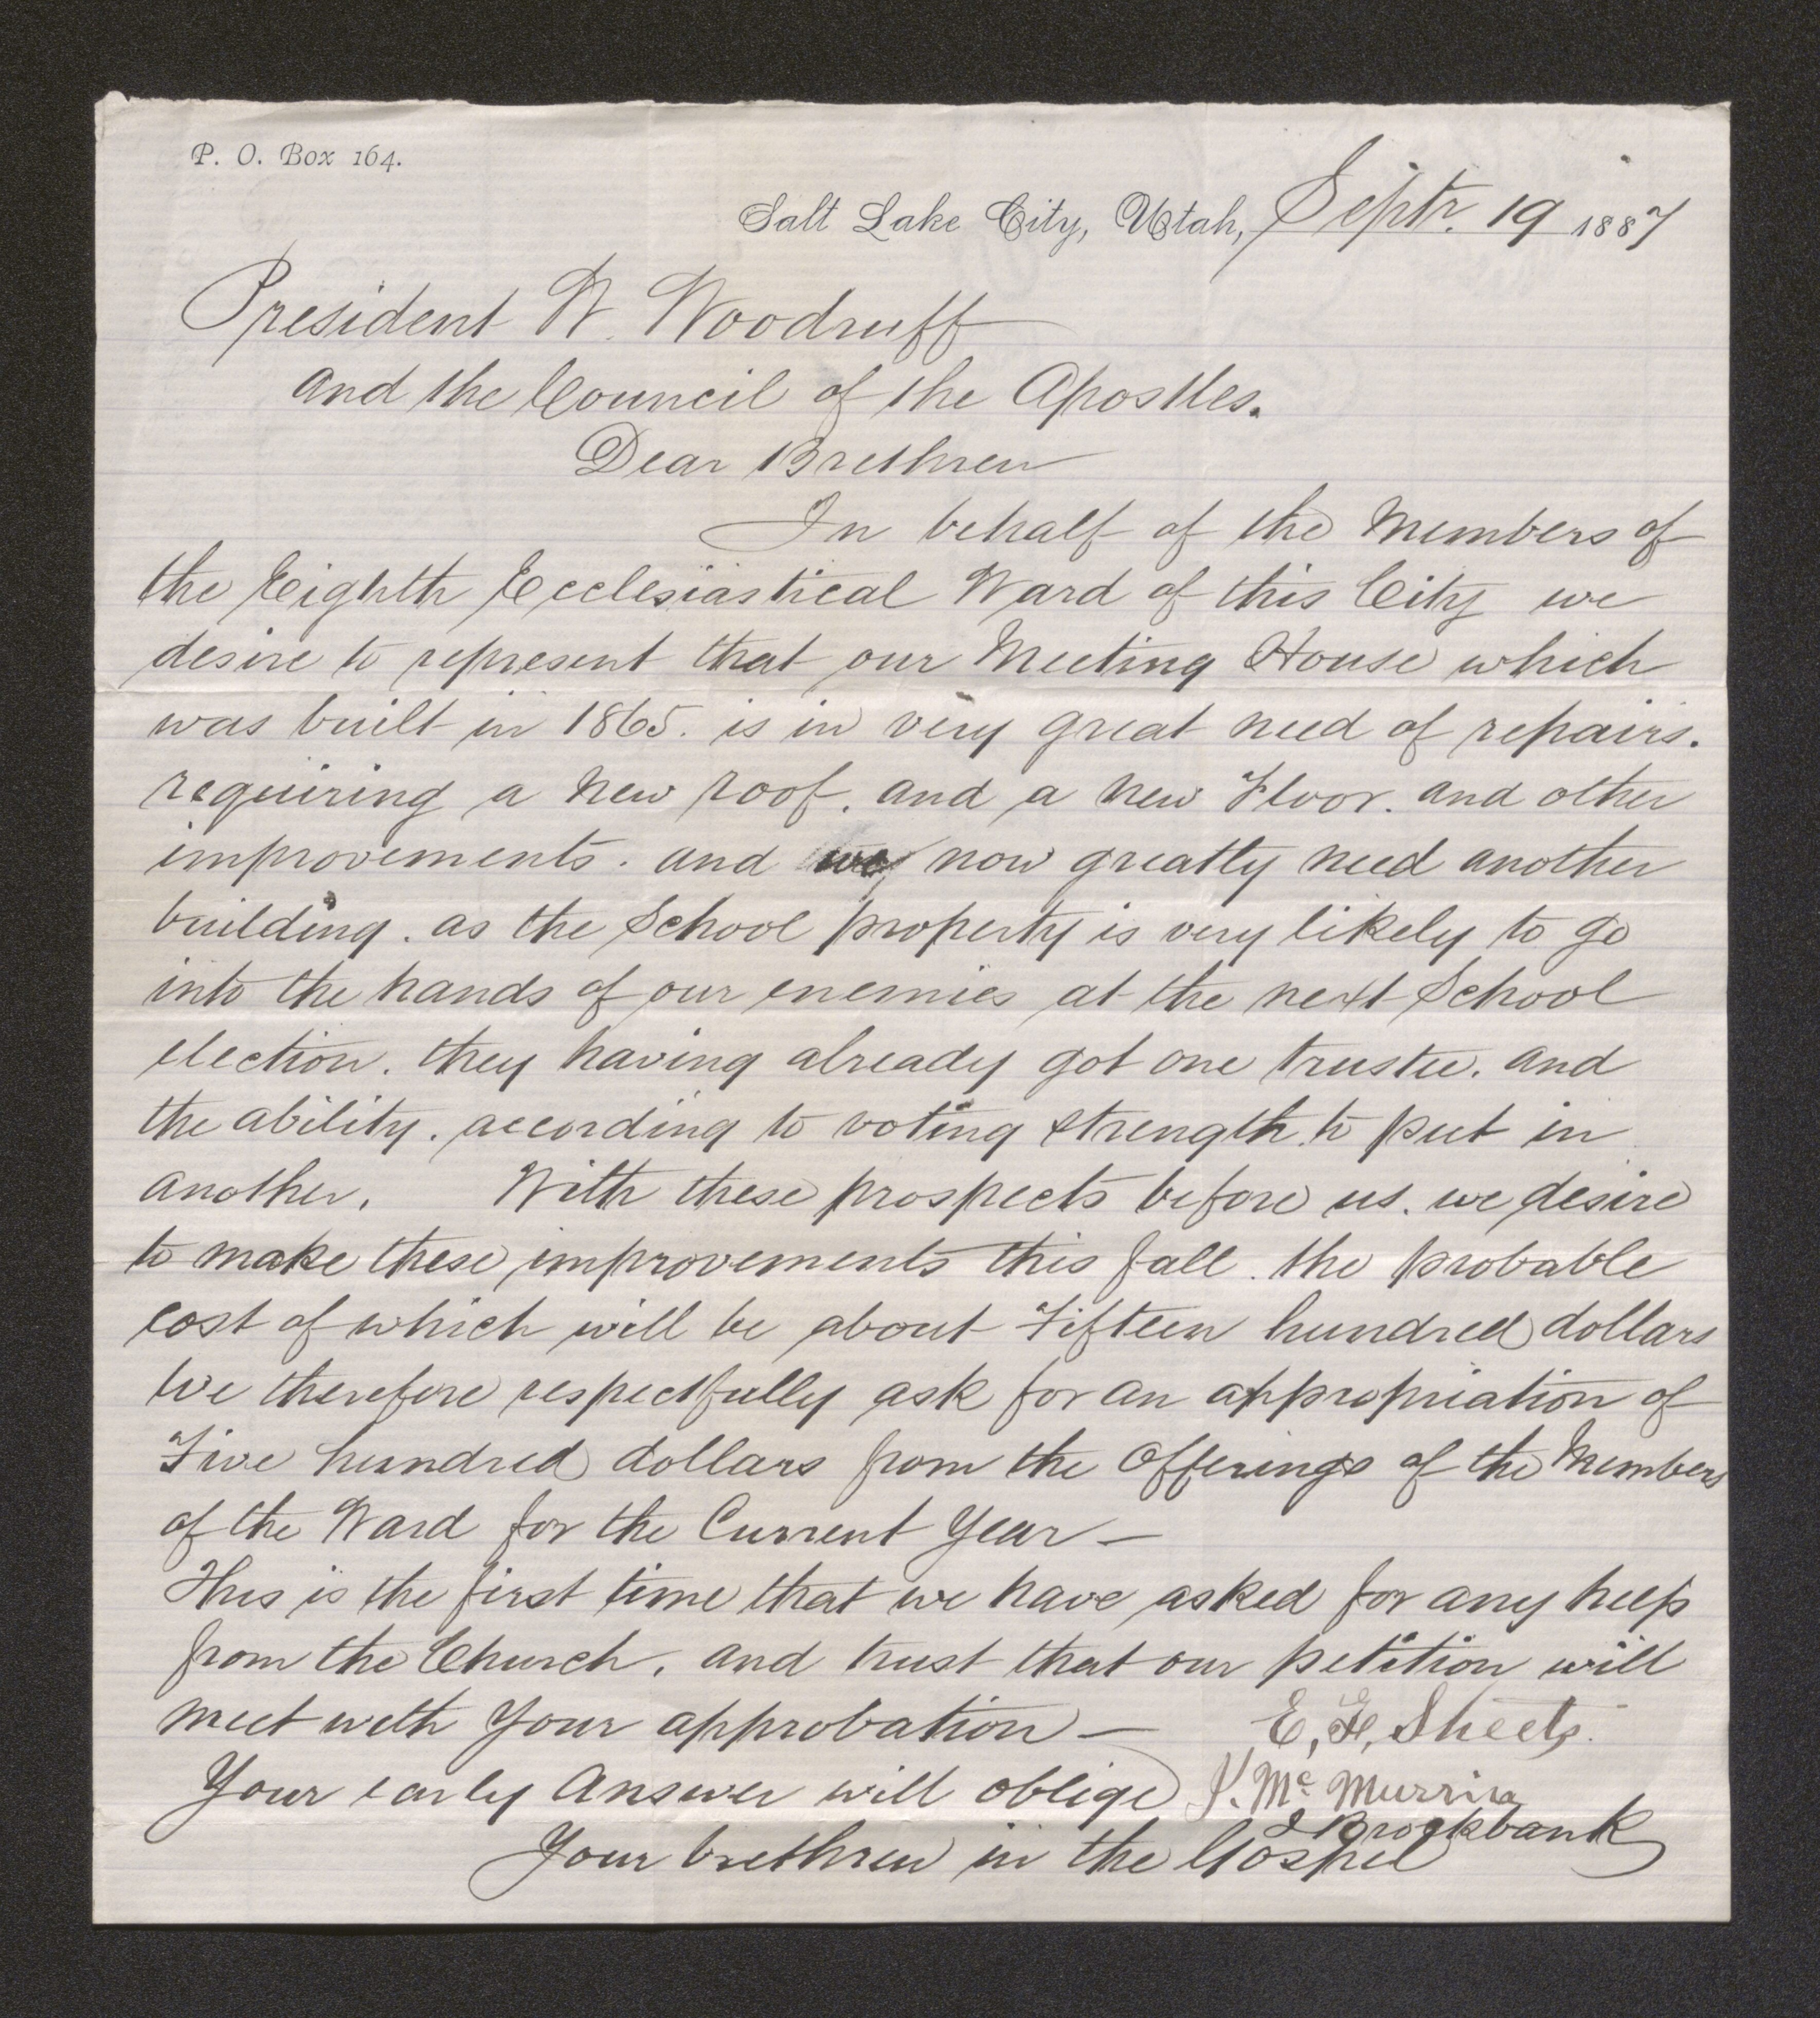 P. O. Box 164.
Salt Lake City, Utah, Septr. 19 1887
President W. Woodruff
and the Council of the Apostles.
Dear Brethren
In behalf of the Members of
the Eighth Ecclesiastical Ward of this City we
desire to represent that our Meeting House which
was built in 1865. is in very great need of repairs.
requiring a new roof. and a new Floor. and other
improvements. and we now greatly need another
building. as the School property is very likely to go
into the hands of our enemies at the next School
election. they having already got one trustee. and
the ability. according to voting strength to put in
another. With these prospects before us. we desire
to make these improvements this fall. the probable
cost of which will be about Fifteen hundred dollars
We therefore respectfully ask for an appropriation of
Five hundred dollars from the Offerings of the Members
of the Ward for the Current Year —
This is the first time that we have asked for any help
from the Church. and trust that our petition will
meet with Your approbation — E. F. Sheets.
Your early Answer will oblige J. McMurrin
I Brockbank
Your brethren in the Gospel